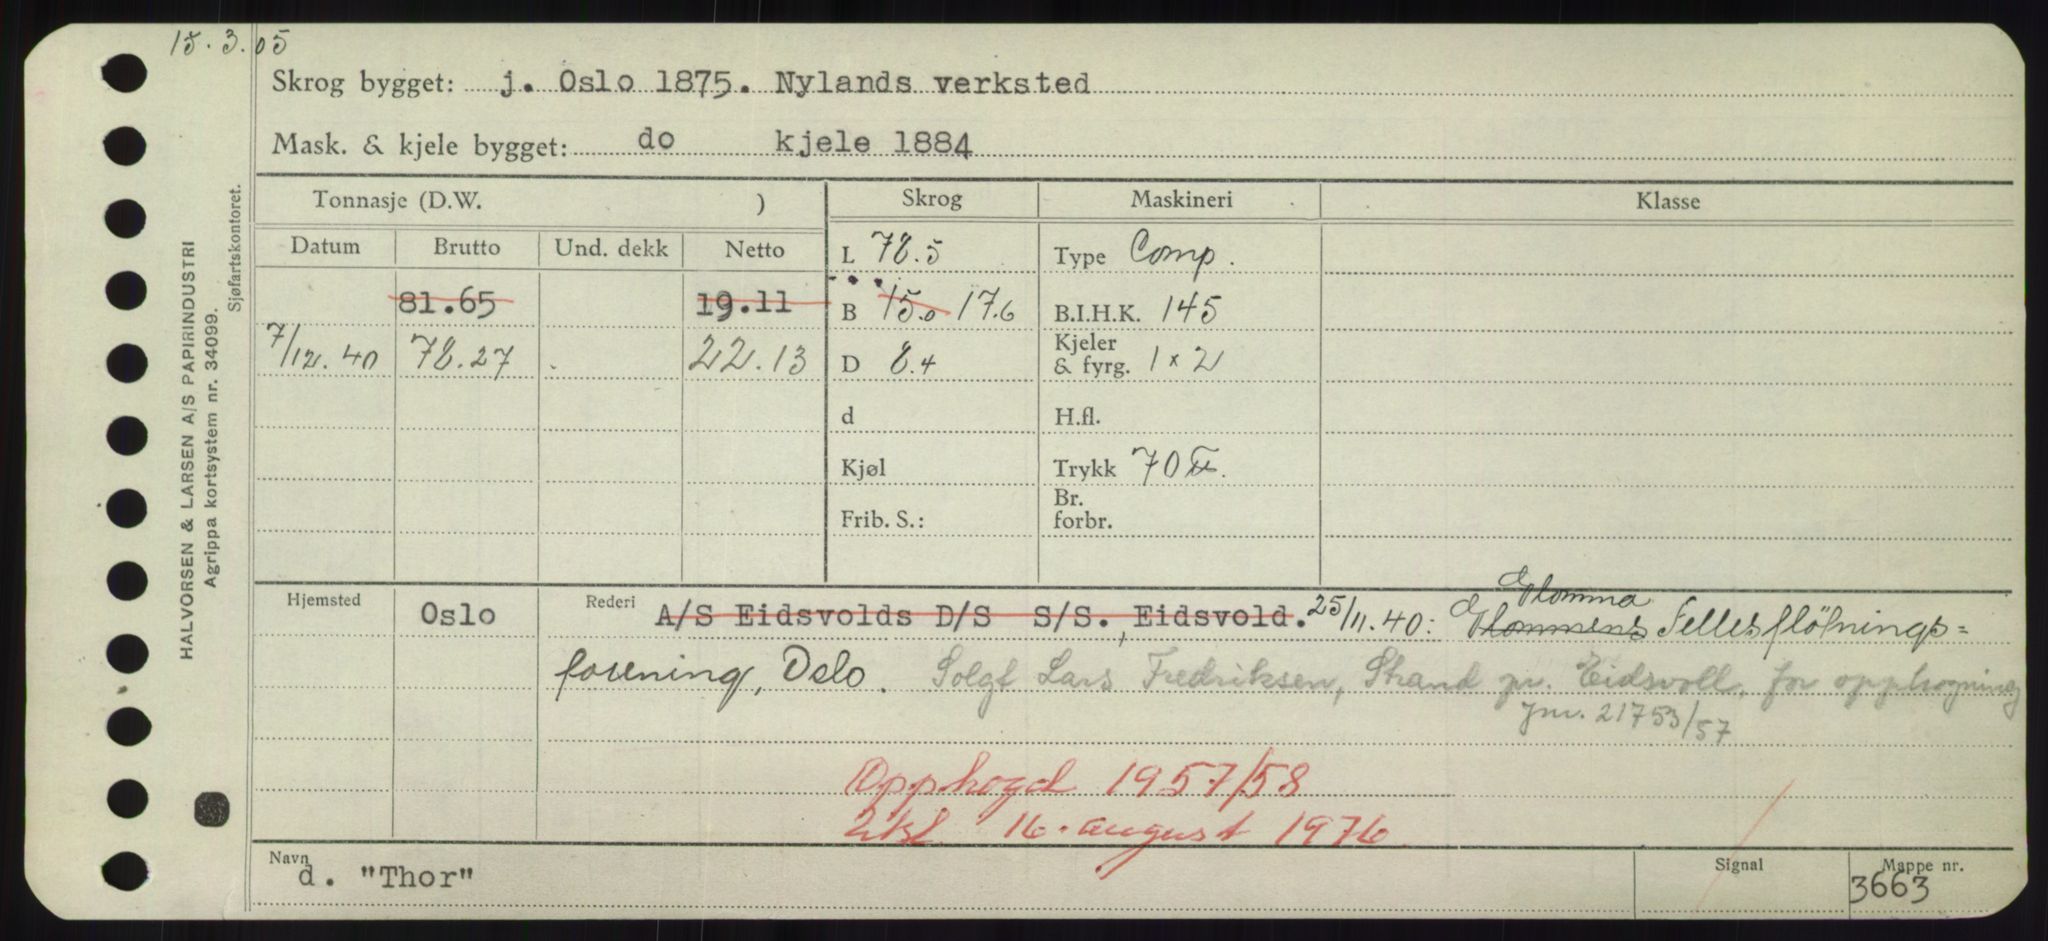 15.3.05
Skrog bygget: j. Oslo 1875. Nylands verksted
Mask. & kjele bygget: do kjele 1884
Tonnasje (D.W. ) Skrog Maskineri Klasse
Datum Brutto Und. dekk Netto L 78.5 Type Comp.
81.65 19.11 B 15.0 17.6 B.I.H.K. 145
7/12.40 78.27 22.13 D 8.4 Kjeler & fyrg. 1 x 2
d H.fl.
Kjøl Trykk 70 ℔.
Frib. S.: Br. forbr.
Glomma
Hjemsted Oslo Rederi A/S Eidsvolds D/S S/S., Eidsvold. 25/11.40: Glommens Fellesfløtnings=
forening, Oslo. Solgt Lars Fredriksen, Strand pr. Eidsvoll, for opphogning
jnr. 21753/57
Opphogd 1957/58
16. august 1976
Navn d. "Thor" Signal Mappe nr. 3663
HALVORSEN & LARSEN A/S PAPIRINDUSTRI
Agrippa kortsystem nr. 34099.
Sjøfartskontoret.